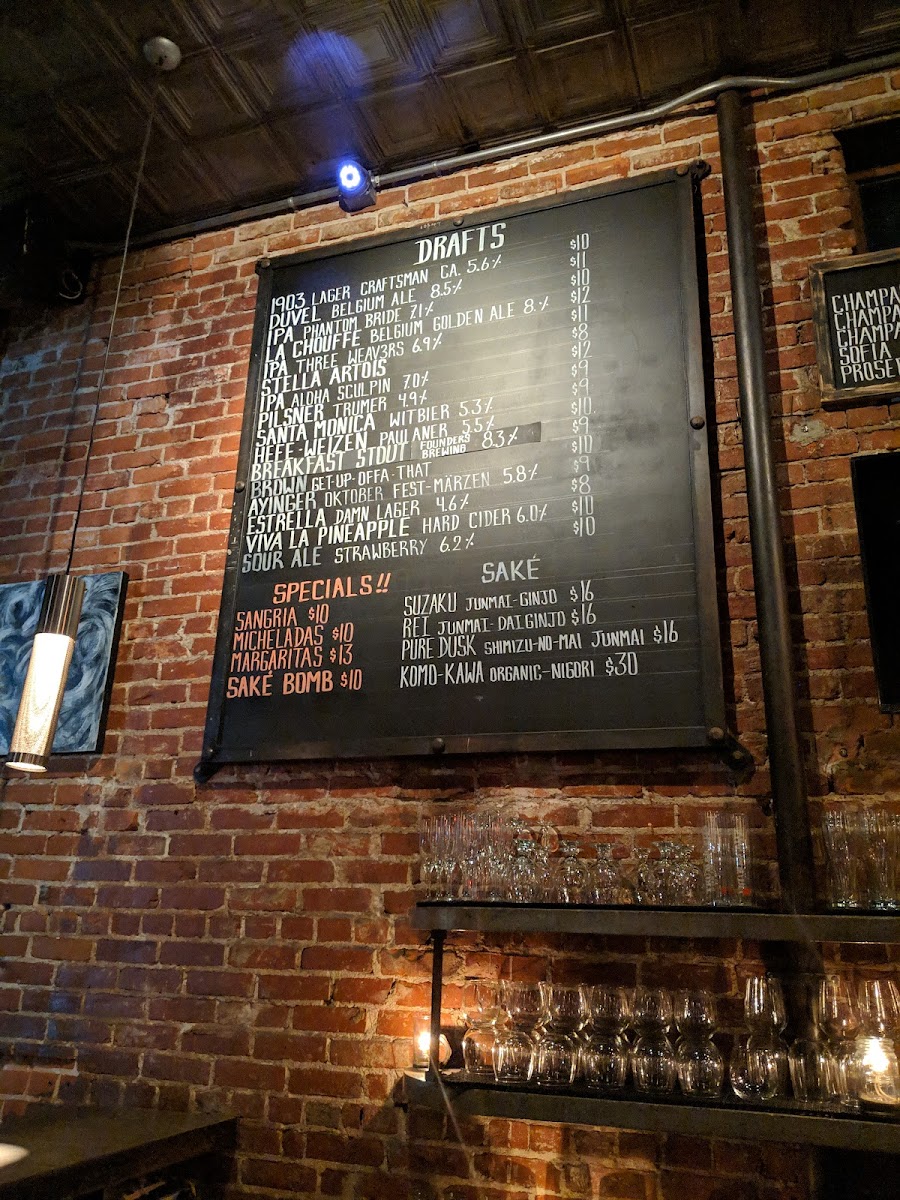 DRAFTS
1903 LAGER CRAFTSMAN CA. 5.6% $10
DUVEL BELGIUM ALE 8.5% $11
IPA PHANTOM BRIDE 7.1% $10
LA CHOUFFE BELGIUM GOLDEN ALE 8.% $12
IPA THREE WEAV3RS 6.9% $11
STELLA ARTOIS $8
IPA ALOHA SCULPIN 7.0% $12
PILSNER TRUMER 4.9% $9
SANTA MONICA WITBIER 5.3% $9
HEFE-WEIZEN PAULANER 5.5% $10
BREAKFAST STOUT FOUNDERS BREWING 8.3% $9
BROWN GET-UP-OFFA-THAT $10
AYINGER OKTOBER FEST-MÄRZEN 5.8% $9
ESTRELLA DAMN LAGER 4.6% $8
VIVA LA PINEAPPLE HARD CIDER 6.0% $10
SOUR ALE STRAWBERRY 6.2% $10
SPECIALS!!
SANGRIA $10
MICHELADAS $10
MARGARITAS $13
SAKÉ BOMB $10
SAKÉ
SUZAKU JUNMAI-GINJO $16
REI JUNMAI-DAIGINJO $16
PURE DUSK SHIMIZU-NO-MAI JUNMAI $16
KOMO-KAWA ORGANIC-NIGORI $30
CHAMPA
CHAMPA
CHAMPA
SOFIA
PROSE